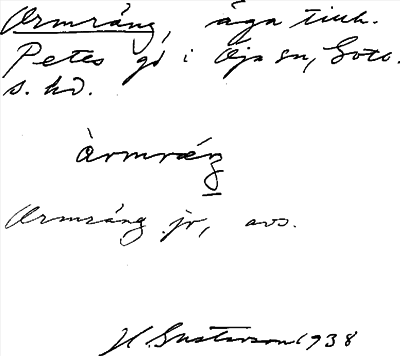 Ormräng, äga tillh.
Petes gd i Öja sn, Gotl.
s. hd.
òrmræŋ
Ormräng jr, avs.
H. Gustavson 1938